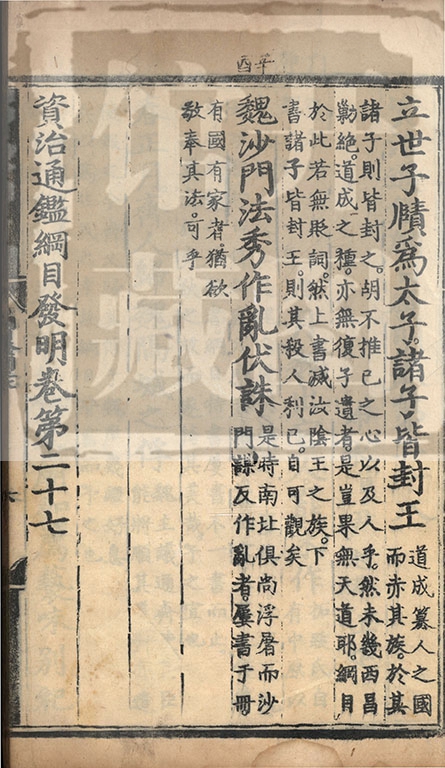 酉平
立世子賾為太子諸子皆封王 道成纂人之國
而赤其族於其
諸子則皆封之胡不推己之心以及人乎然未幾西昌
勦絶道成之種亦無復孑遺者是豈果無天道耶綱目
於此若無貶詞然上書滅汝陰王之族下
書諸子皆封王則其殺人利己自可觀矣
魏沙門法秀作亂伏誅 是時南北俱尚浮屠而沙
門謀反作亂者屢書于冊
有國有家者猶欲
敬奉其法可乎
資治通鑑綱目發明卷第二十七
館藏